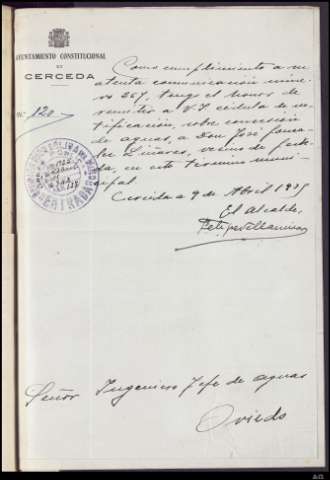 AYUNTAMIENTO CONSTITUCIONAL
DE
CERCEDA
Nº 120
Como cumplimiento a su
atenta comunicación núme-
ro 267, tengo el honor de
remitir a V.S. cédula de no-
tificación, sobre concesión
de aguas a Don José
Liñares, vecino de
da, en este término muni-
cipal.
Cerceda a 9 de Abril 1935
El Alcalde,
ENTRADA
Señor Ingeniero Jefe de aguas
Oviedo